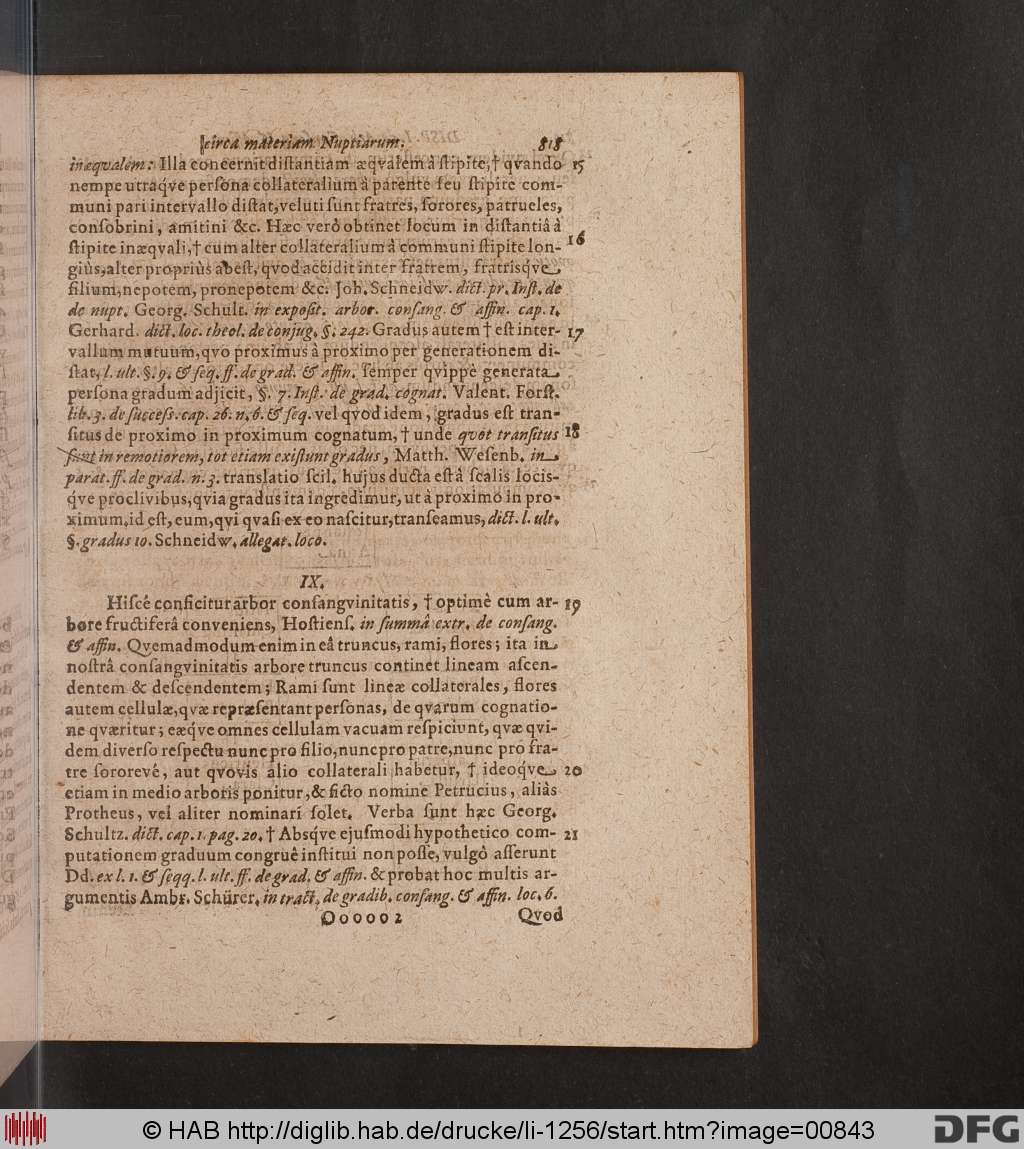 circa materiam Nuptiarum. 818
inæqvalem: Illa concernit distantiam æqvalem â stipite,† qvando 15
nempe utraq́ve persona collateralium à parente seu stipite com-
muni pari intervallo distat,veluti sunt fratres, sorores, patrueles,
consobrini, amitini &c. Hæc verò obtinet locum in distantiâ â
stipite inæqvali,† cum alter collateralium â communi stipite lon- 16
giùs,alter propriùs abest, qvod accidit inter fratrem, fratrisq́ve
filium,nepotem, pronepotem &c. Joh. Schneidw. dict. pr. Inst. de
de nupt. Georg. Schult. in exposit. arbor. consang. & affin. cap. 1.
Gerhard. dict. loc. theol. de conjug. §. 242. Gradus autem † est inter- 17
vallum mutuum,qvo proximus à proximo per generationem di-
stat, l. ult. §. 9. & seq. ff. de grad. & affin. semper qvippè generata
persona gradum adjicit, §. 7. Inst. de grad. cognat. Valent. Forst.
lib. 3. de success. cap. 26. n. 6. & seq. vel qvod idem, gradus est tran-
situs de proximo in proximum cognatum, † unde qvot transitus 18
sunt in remotiorem, tot etiam existunt gradus, Matth. Wesenb. in
parat. ff. de grad. n. 3. translatio scil. hujus ducta est â scalis locis-
q́ve proclivibus,qvia gradus ita ingredimur, ut à proximo in pro-
ximum,id est, eum,qvi qvasi ex eo nascitur,transeamus, dict. l. ult.
§. gradus 10. Schneidw. allegat. loco.
IX.
Hiscé conficitur arbor consangvinitatis, † optimè cum ar- 19
bore fructiferâ conveniens, Hostiens. in summâ extr. de consang.
& affin. Qvemadmodum enim in eâ truncus, rami, flores; ita in
nostrâ consangvinitatis arbore truncus continet lineam ascen-
dentem & descendentem; Rami sunt lineæ collaterales, flores
autem cellulæ,qvæ repræsentant personas, de qvarum cognatio-
ne qværitur; eæq́ve omnes cellulam vacuam respiciunt, qvæ qvi-
dem diverso respectu nunc pro filio,nunc pro patre,nunc pro fra-
tre sororevé, aut qvovis alio collaterali habetur, † ideoq́ve 20
etiam in medio arboris ponitur,& ficto nomine Petrucius, aliàs
Protheus, vel aliter nominari solet. Verba sunt hæc Georg.
Schultz. dict. cap. 1. pag. 20. † Absq́ve ejusmodi hypothetico com- 21
putationem graduum congruê institui non posse, vulgò asserunt
Dd. ex l. 1. & seqq. l. ult. ff. de grad. & affin. & probat hoc multis ar-
gumentis Ambr. Schürer. in tract. de gradib. consang. & affin. loc. 6.
Ooooo 2 Qvod
© HAB http://diglib.hab.de/drucke/li-1256/start.htm?image=00843
DFG